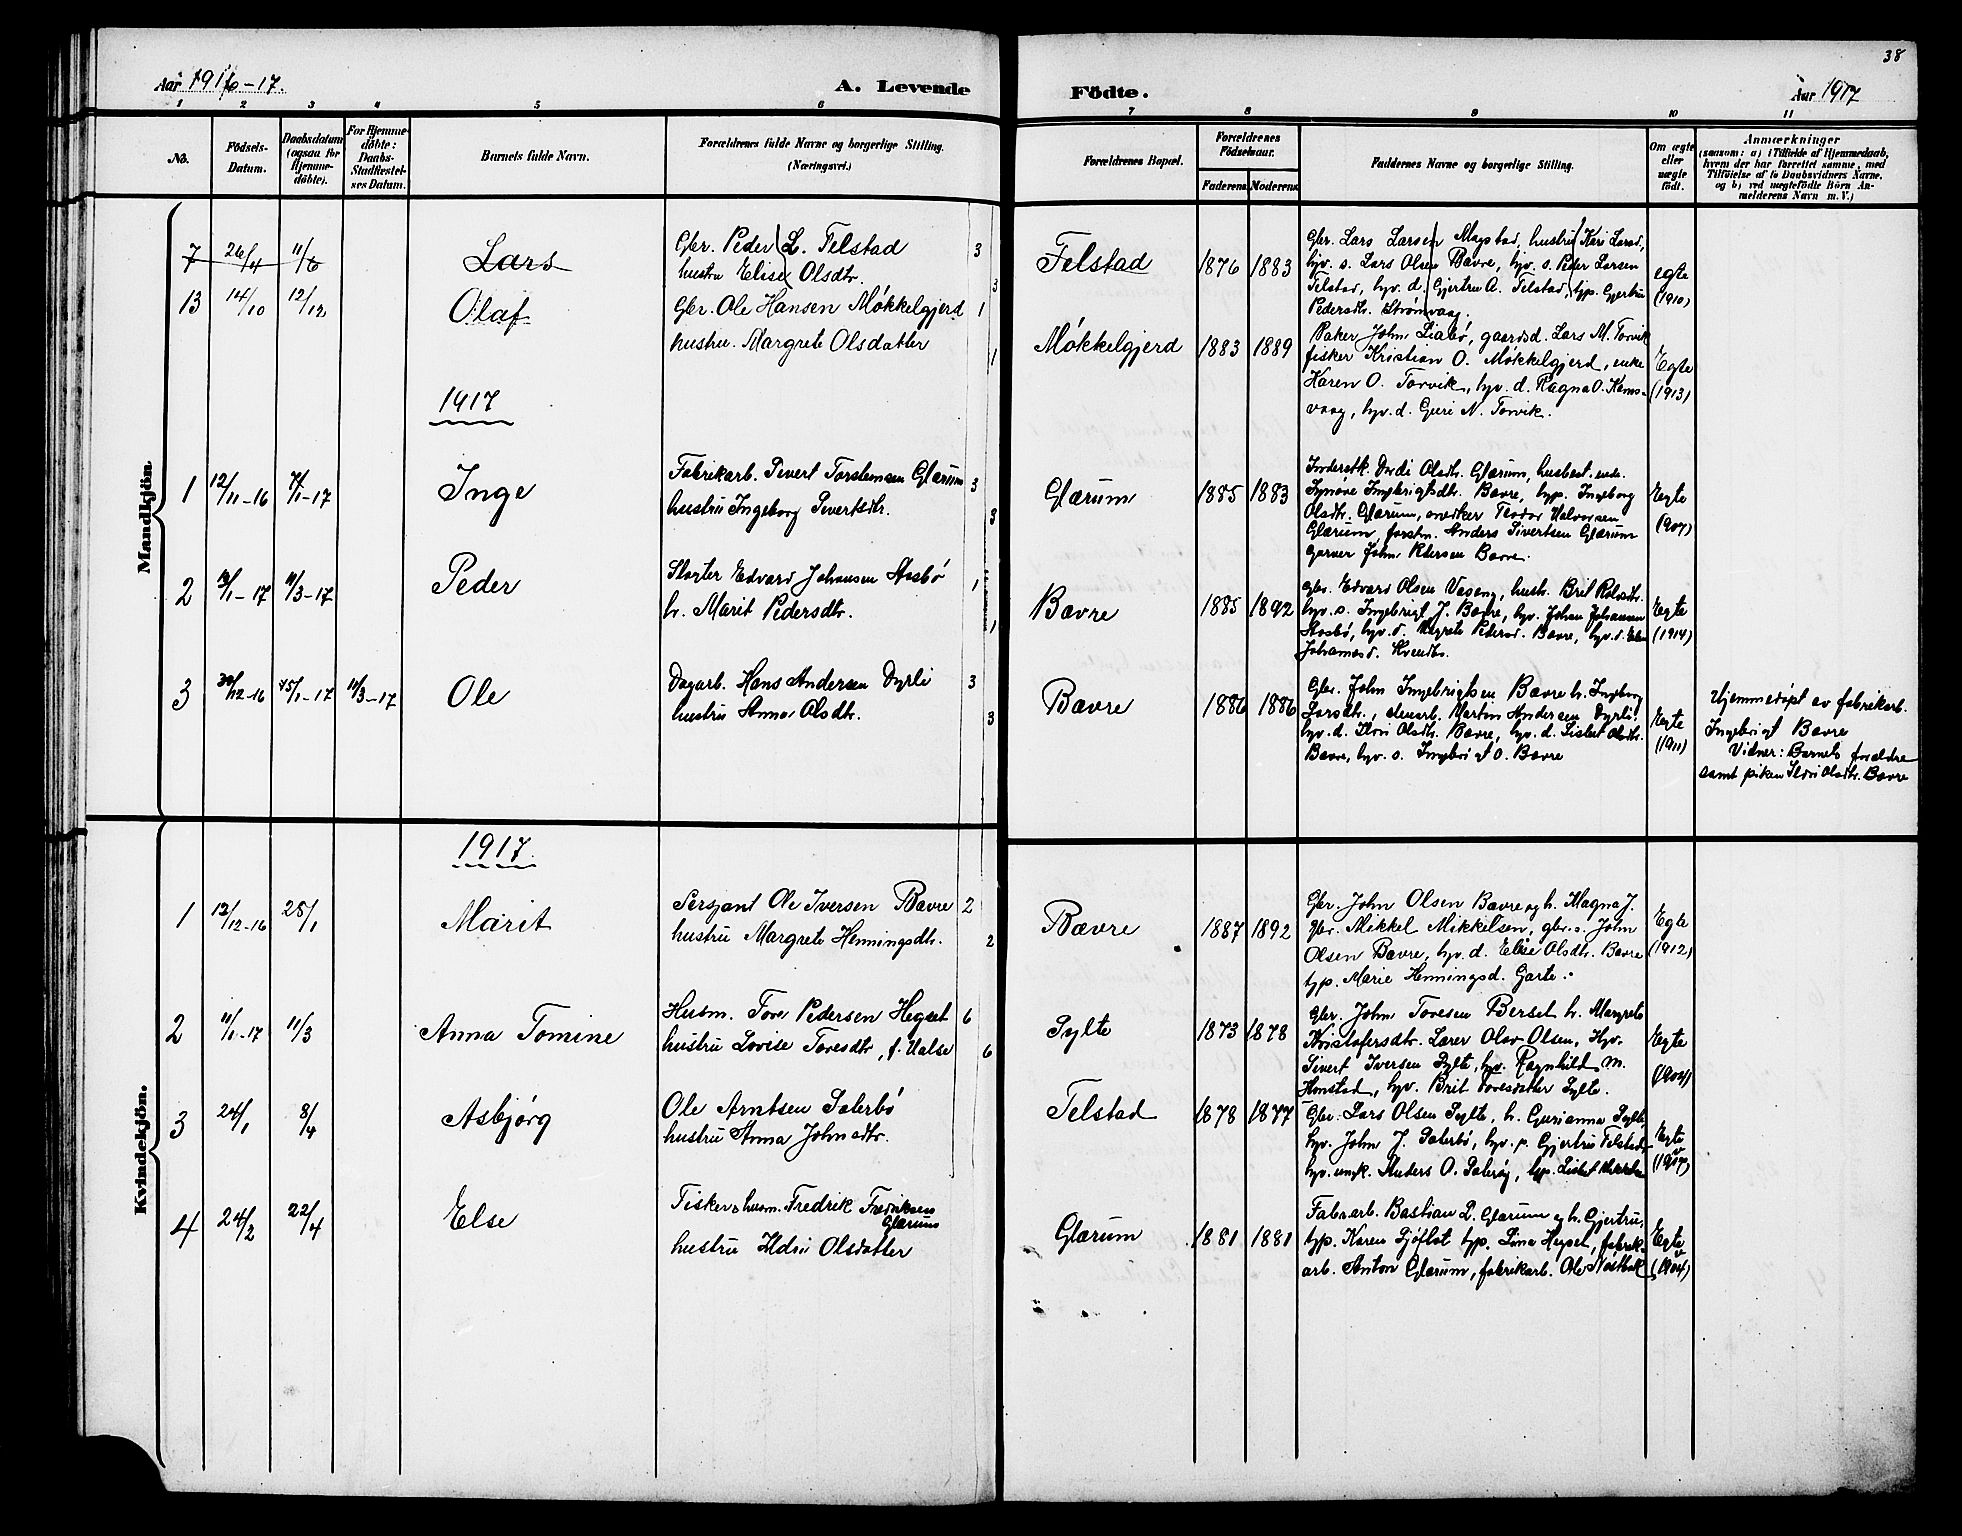 38
Aar 1916-17.
A. Levende
Födte.
Aar 1917
1 2 3 4 5 6 7 8 9 10 11
No.
Födsels-Datum.
Daabsdatum (ogsaa for Hjemmedöbte).
For Hjemmedöbte: Daabs-Stadfestelses Datum.
Barnets fulde Navn.
Forældrenes fulde Navne og borgerlige Stilling.
(Næringsvei.)
Forældrenes Bopæl.
Forældrenes Födselsaar.
Faderens Moderens
Faddernes Navne og borgerlige Stilling.
Om ægte eller uægte födt.
Anmærkninger
(saasom: a) i Tilfælde af Hjemmedaab,
hvem der har forrettet samme, med
Tilföielse af to Daabsvidners Navne,
og b) ved uægtefödte Börn An-
melderens Navn m. V.)
Mandkjön.
7 26/4 11/6 Lars
Gbr. Peder L. Felstad 3
hustru Elise Olsdtr. 3
Felstad 1876 1883
Gbr. Lars Larsen Magstad, hustru Kari Larsd,
hv. s. Lars Olsen Bævre, hv. s. Peder Larsen
Telstad, hv. d. Gjertru A. Telstad, typ. Gjertru
Pedersdtr. Strømsvaag.
egte
(1910)
13 14/10 12/12 Olaf
Gbr. Ole Hansen Møkkelgjerd 1
hustru. Margrete Olsdatter 1
Møkkelgjerd 1883 1889
Baker John Liabø, gaardsd. Lars M. Torvik
fisker Kristian O. Møkkelgjerd, enke
Karen O. Torvik, hv. d. Ragna O. Kams-
vaag, hv. d. Guri N. Torvik.
Egte
(1913)
1917
1 12/11-16 7/1-17 Inge
Fabrikarb. Sivert Torstensen Glærum 3
hustru Ingeborg Sivertsdtr. 3
Glærum 1885 1883
Inderstk. Dordi Olsdtr. Glærum, husbest. enke.
Synøve Ingebrigtsdtr. Bævre, typ. Ingeborg
Olsdtr. Glærum, snedker Teodor Halvorsen
Glærum, forstm. Anders Sivertsen Glærum
garver John Petersen Bævre.
Egte
(1907)
2 /1-17 11/3-17 Peder
Slagter Edvard Johansen Aasbø 1
h. Marit Pedersdtr. 1
Bævre 1885 1892
gbr. Edvard Olsen Vaseng, hustr. Brit
hv. s. Ingebrigt J. Bævre, hv. Johan Johansen
Aasbø, hv. d. Margrete Pedersd. Bævre, hv. d.
Johannesd.
Egte
(1914)
3 30/12-16 /1-17 11/3-17 Ole
Dagarb. Hans Andersen Dyrli 3
hustru Anna Olsdtr. 3
Bævre 1886 1886
Gbr. John Ingebrigtsen Bævre h. Ingeborg
Larsdtr., elvearb. Martin Andersen Dyrli.
hv. d. Ildri Olsdtr. Bævre, hv. d. Lisbet Olsdtr.
Bævre, hv. s. Ingebrigt O. Bævre
Egte
(1911)
Hjemmedøpt av fabrikarb.
Ingebrigt Bævre
Vidner: Barnets forældre
samt piken Ildri Olsdtr. Bævre
Kvindekjön.
1917.
1 12/12-16 28/1 Marit
Sersjant Ole Iversen Bævre 2
hustru Margrete Henningsdtr. 2
Bævre 1887 1892
Gbr. John Olsen Bævre og h. Magna J.
gbr. Mikkel Mikkelsen, gbr. s. John
Olsen Bævre, hv. d. Elise Olsdtr. Bævre
typ. Marie Henningsd. Garte.
Egte
(1912)
2 11/1-17 11/3 Anna Tomine
Husm. Tore Pedersen Hegset 6
hustru Lovise Toresdtr, f. Valse 6
Sylte 1873 1878
Gbr. John Toresen Berset h. Margrete
Kristofersdtr. Lærer Olav Olsen, Hv.
Sivert Iversen Sylte, hv. Ragnhild M.
Honstad, hv. Brit Toresdatter Sylte.
Egte
(1904)
3 24/1 8/4 Asbjørg
Ole Arntsen Sæterbø
hustru Anna Johnsdtr.
Telstad 1878 1877
Gbr. Lars Olsen Sylte, h. Gurianna Sylte,
hv. John J. Sæterbø, hv. p. Gjertru Telstad,
hv. ungk. Anders O. Sæterøy, typ. Lisbet
Egte
4 24/2 22/4 Else
Fisker & husm. Fredrik Fredriksen
Glærum
hustru Ildri Olsdatter
Glærum 1881 1881
Fabr.arb. Bastian P. Glærum og h. Gjertru,
typ. Karen Sjøflot typ. Lina Hegset, fabrik-
arb. Anton Glærum, fabrikarb. Ole Nostbak
Egte
(1904)